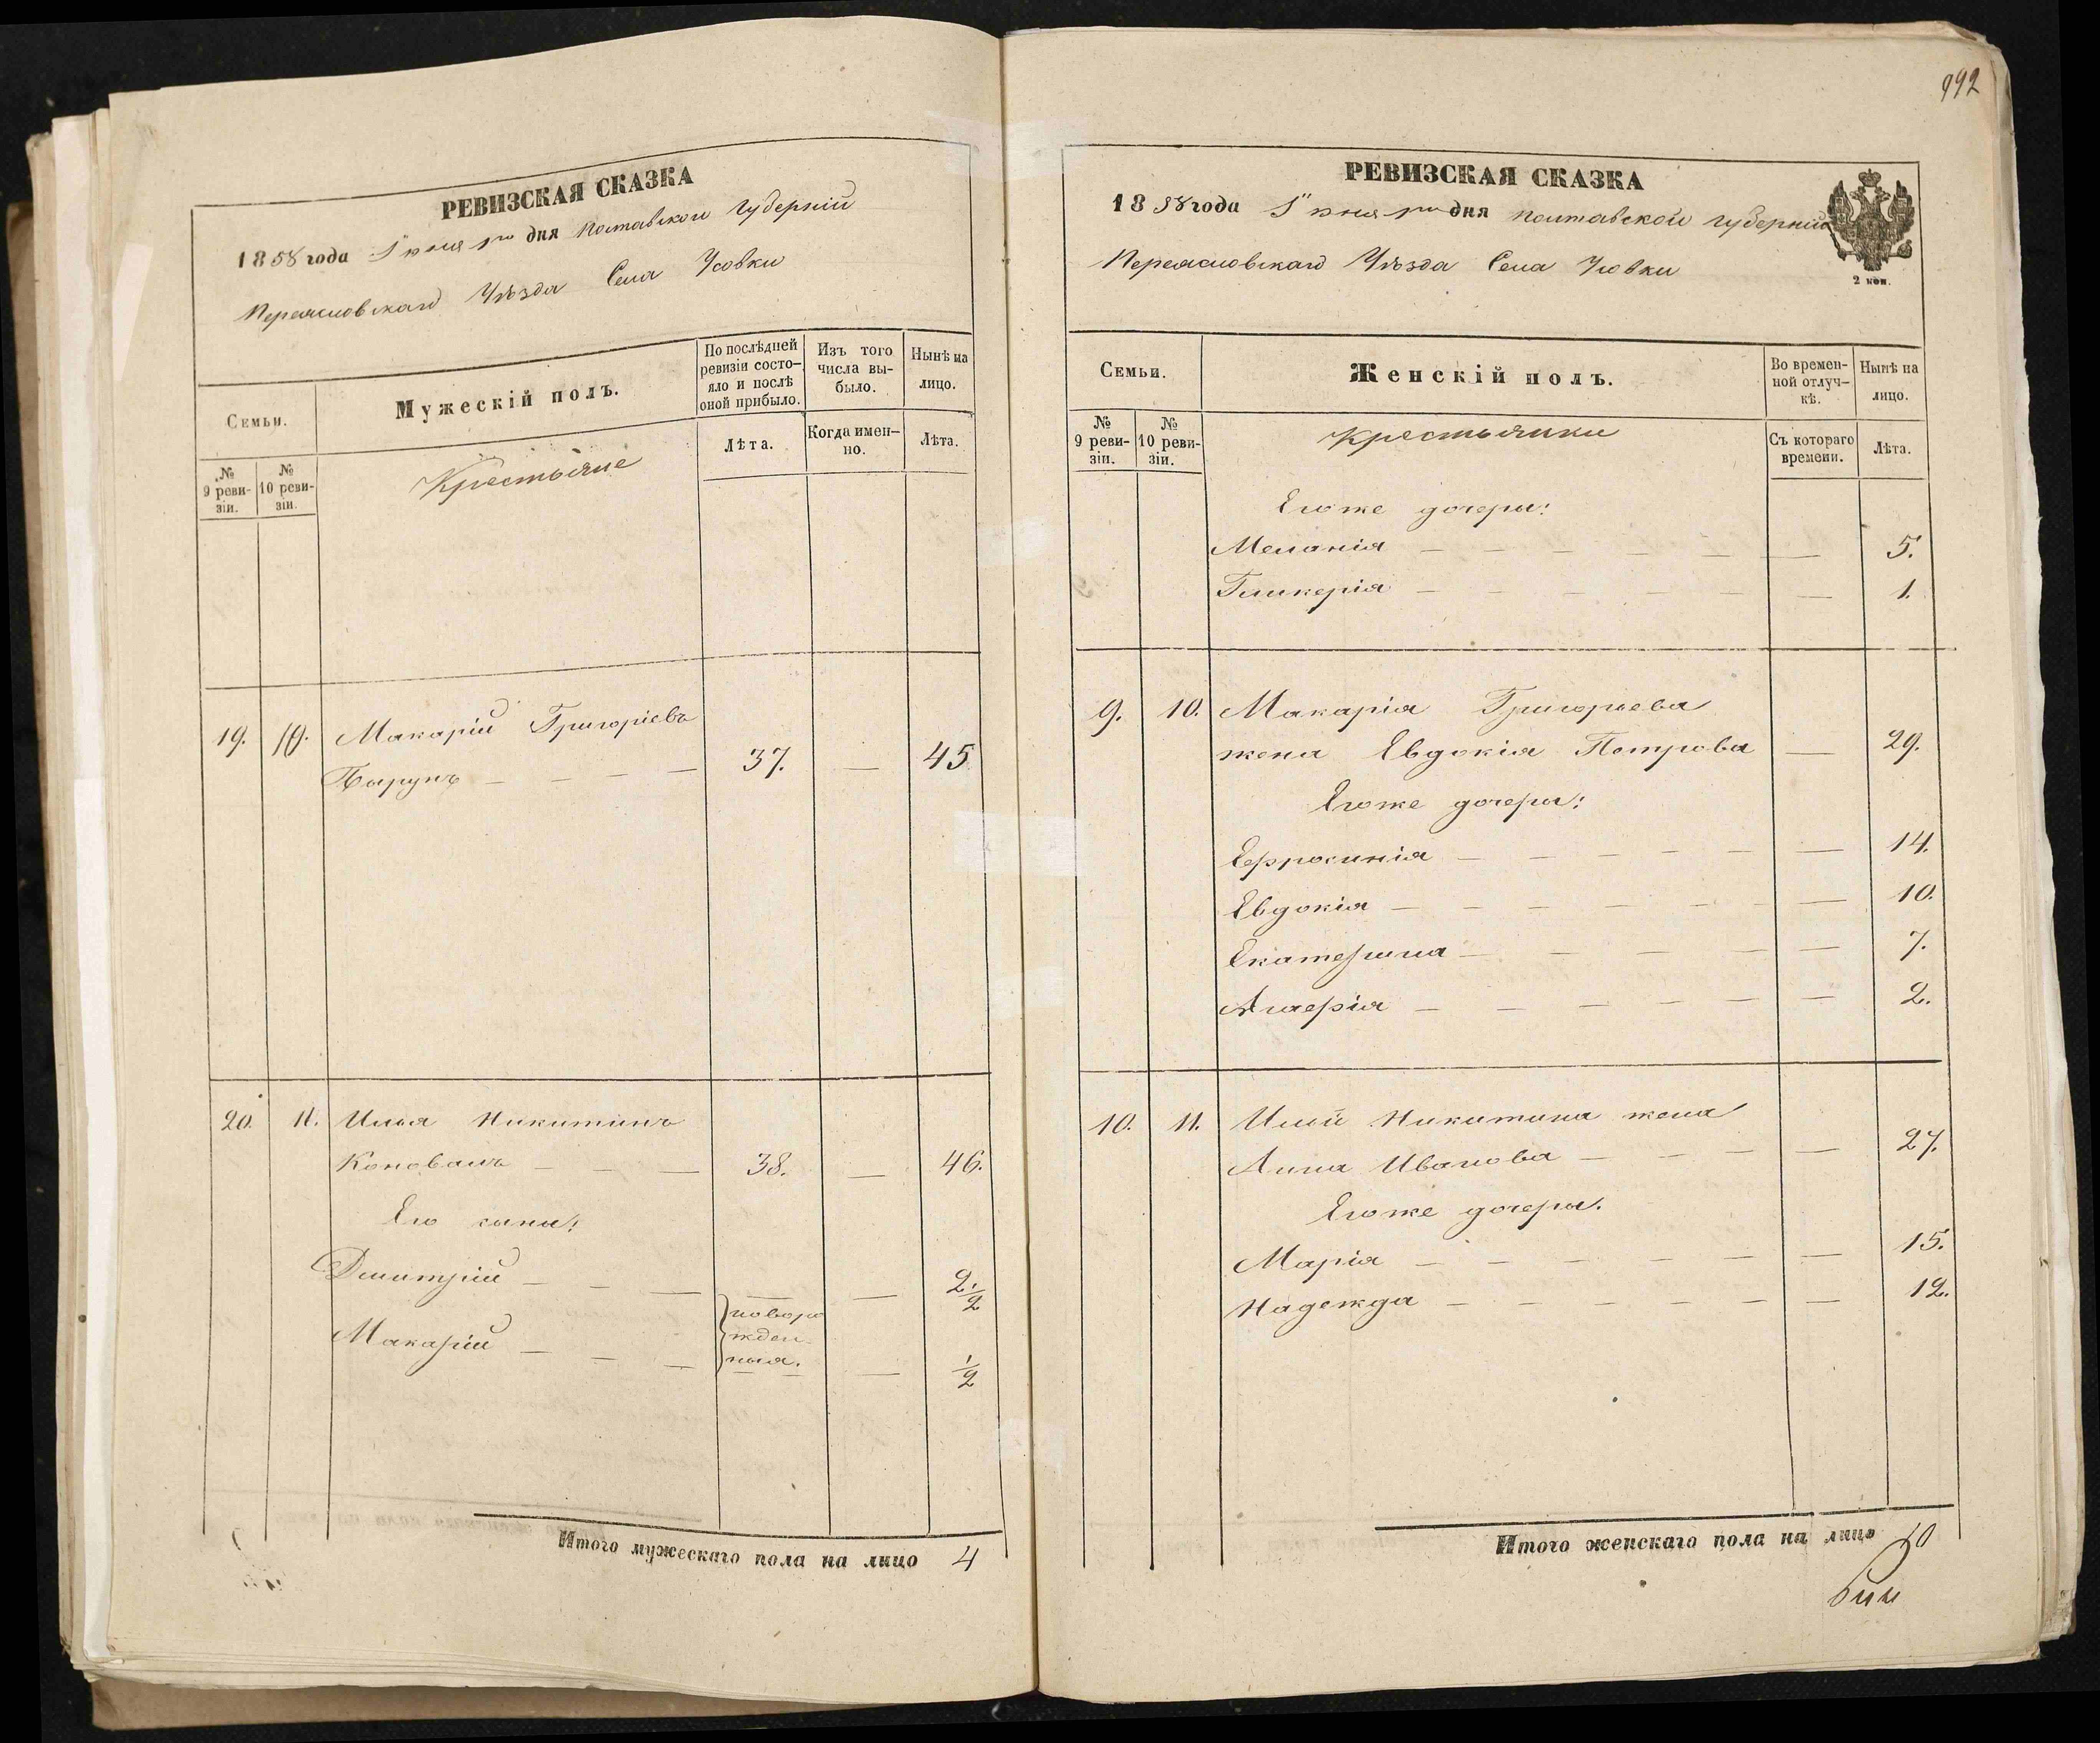 992
РЕВИЗСКАЯ СКАЗКА
1858 года Іюня 1го дня Полтавской Губерніи
Переяславскаго Уѣзда Села Усовки
Семьи.
Мужескій полъ.
По послѣдней ревизіи состо-
яло и послѣ
оной прибыло.
Изъ того
числа вы-
было.
Нынѣ на
лицо.
№
9 реви-
зіи.
№
10 реви-
зіи.
Крестьяне
Лѣта.
Когда имен-
но.
Лѣта.
19. 10. Макарій Григоріевъ
37. — 45
20. 11. Илья Никитинъ
Коновалъ — — — 38. — 46.
Его сыны:
Дмитрій — — — — — 2 1/2
Макарій — — — новоро
жден-
ныя. — 1/2
Итого мужескаго пола на лицо 4
РЕВИЗСКАЯ СКАЗКА
1858 года Іюня 1го дня Полтавской Губерніи
Переяславскаго Уѣзда Села Усовки
2 коп.
Семьи.
Женскій полъ.
Во времен-
ной отлуч-
кѣ.
Нынѣ на
лицо.
№
9 реви-
зіи.
№
10 реви-
зіи.
Крестьянки
Съ котораго
времени.
Лѣта.
Егоже дочери:
Меланія — — — — — — — 5.
Гликерія — — — — — — 1.
9. 10. Макарія Григорьева
жена Евдокія Петрова — 29.
Егоже дочери:
Ефросинія — — — — — — 14.
Евдокія — — — — — — 10.
Екатерина — — — — — 7.
— — — — — — 2.
10. 11. Ильи Никитина жена
Анна Иванова — — — — — 27.
Егоже дочери.
Марія — — — — — — 15.
Надежда — — — — — — 12.
Итого женскаго пола на лицо 10